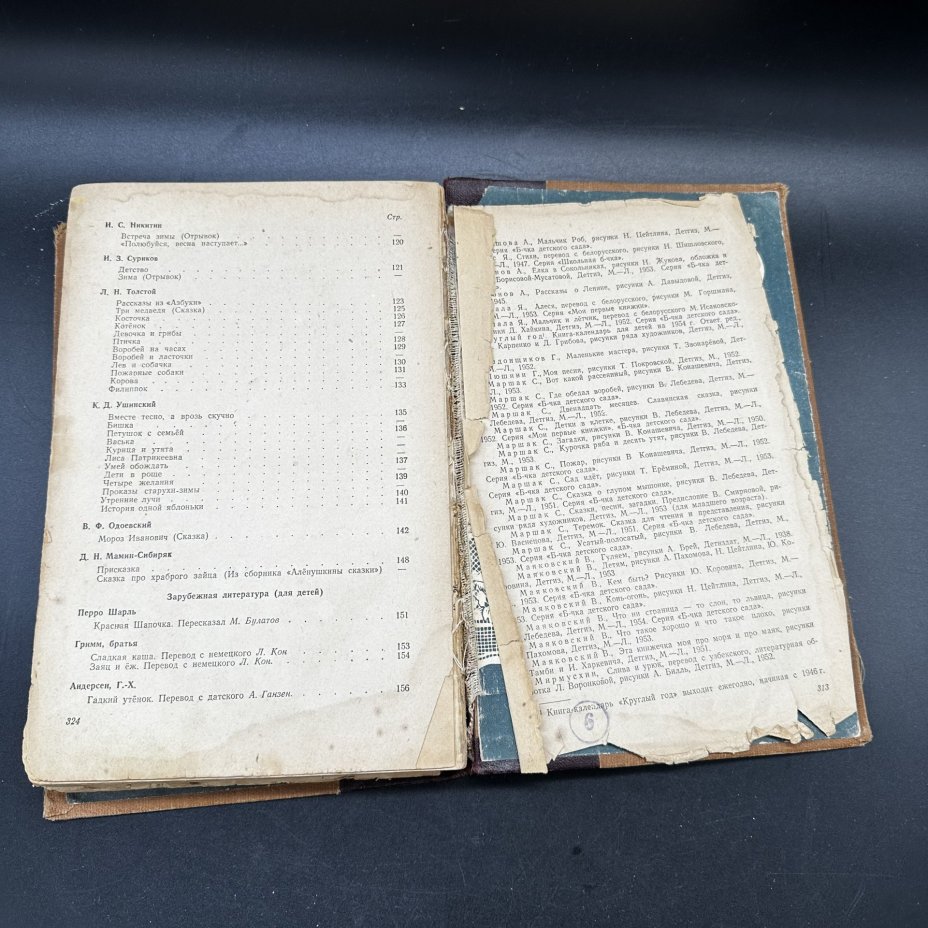 Стр.
И. С. Никитин
Встреча зимы (Отрывок) —
«Полюбуйся, весна наступает...» 120
И. З. Суриков
Детство 121
Зима (Отрывок) —
Л. Н. Толстой
Рассказы из «Азбуки» 123
Три медведя (Сказка) 125
Косточка 126
Котёнок 127
Девочка и грибы —
Птичка 128
Воробей на часах 129
Воробей и ласточки —
Лев и собачка 130
Пожарные собаки 131
Корова —
Филиппок 133
К. Д. Ушинский
Вместе тесно, а врозь скучно 135
Бишка —
Петушок с семьёй 136
Васька —
Курица и утята —
Лиса Патрикеевна 137
Умей обождать —
Дети в роще 139
Четыре желания —
Проказы старухи-зимы 140
Утренние лучи 141
История одной яблоньки —
В. Ф. Одоевский
Мороз Иванович (Сказка) 142
Д. Н. Мамин-Сибиряк
Присказка 148
Сказка про храброго зайца (Из сборника «Алёнушкины сказки») —
Зарубежная литература (для детей)
Перро Шарль
Красная Шапочка. Пересказал М. Булатов 151
Гримм, братья
Сладкая каша. Перевод с немецкого Л. Кон 153
Заяц и ёж. Перевод с немецкого Л. Кон. 154
Андерсен, Г.-Х.
Гадкий утёнок. Перевод с датского А. Ганзен. 156
324
А., Мальчик Роб, рисунки Н. Цейтлина, Детгиз, М.—
серия «Б-чка детского сада».
Я., Стихи, перевод с белорусского, рисунки Н. Шишловского,
Л., 1947. Серия «Школьная б-чка».
А., Ёлка в Сокольниках, рисунки Н. Жукова, обложка и
Борисовой-Мусатовой, Детгиз, М.—Л., 1953. Серия «Б-чка дет-
А., Рассказы о Ленине, рисунки А. Давыдовой, Детгиз,
1945.
Я., Алеся, перевод с белорусского, рисунки М. Горшмана,
М.—Л., 1953. Серия «Мои первые книжки».
Я., Мальчик и лётчик, перевод с белорусского М. Исаковско-
Д. Хайкина, Детгиз, М.—Л., 1952. Серия «Б-чка детского сада».
год! Книга-календарь для детей на 1954 г. Ответ. ред.,
Карпенко и Д. Грибова, рисунки ряда художников, Детгиз, М.—
Г., Маленькие мастера, рисунки Т. Звонарёвой, Дет-
М.—Л., 1952.
Г., Моя песня, рисунки Т. Покровской, Детгиз, М., 1952.
Маршак С., Вот какой рассеянный, рисунки В. Конашевича, Детгиз,
Л., 1953.
Маршак С., Где обедал воробей, рисунки В. Лебедева, Детгиз, М.—
1952. Серия «Б-чка детского сада».
Маршак С., Двенадцать месяцев. Славянская сказка, рисунки
Лебедева, Детгиз, М.—Л., 1952.
Маршак С., Детки в клетке, рисунки В. Лебедева, Детгиз, М.,
1952. Серия «Мои первые книжки». «Б-чка детского сада».
Маршак С., Загадки, рисунки В. Конашевича, Детгиз, М., 1950.
Маршак С., Курочка ряба и десять утят, рисунки В. Лебедева, Дет-
гиз, М., 1953.
Маршак С., Пожар, рисунки В. Конашевича, Детгиз, М.—Л., 1952.
Серия «Б-чка детского сада».
Маршак С., Сад идёт, рисунки Т. Ерёминой, Детгиз, М.—Л., 1953.
Серия «Б-чка детского сада».
Маршак С., Сказка о глупом мышонке, рисунки В. Лебедева, Дет-
гиз, М.—Л., 1951. Серия «Б-чка детского сада».
Маршак С., Сказки, песни, загадки. Предисловие В. Смирновой, ри-
сунки ряда художников, Детгиз, М.—Л., 1953 (для младшего возраста).
Маршак С., Теремок. Сказка для чтения и представления, рисунки
Ю. Васнецова, Детгиз, М.—Л., 1951. Серия «Б-чка детского сада».
Маршак С., Усатый-полосатый, рисунки В. Лебедева, Детгиз, М.,
1953. Серия «Б-чка детского сада».
Маяковский В., Гуляем, рисунки А. Брей, Детиздат, М.—Л., 1938.
Маяковский В., Детям, рисунки А. Пахомова, Н. Цейтлина, Ю. Ко-
ровина, Детгиз, М.—Л., 1953.
Маяковский В., Кем быть? Рисунки Ю. Коровина, Детгиз, М.—
1953. Серия «Б-чка детского сада».
Маяковский В., Конь-огонь, рисунки Н. Цейтлина, Детгиз, М.—Л.,
53. Серия «Б-чка детского сада».
Маяковский В., Что ни страница — то слон, то львица, рисунки
Лебедева, Детгиз, М.—Л., 1954. Серия «Б-чка детского сада».
Маяковский В., Что такое хорошо и что такое плохо, рисунки
Пахомова, Детгиз, М.—Л., 1953.
Маяковский В., Эта книжечка моя про моря и про маяк, рисунки
Тамби и И. Харкевича, Детгиз, М.—Л., 1951.
Мирмухсин, Слива и урюк, перевод с узбекского, литературная об-
ботка Л. Воронковой, рисунки А. Билль, Детгиз, М.—Л., 1952.
Книга-календарь «Круглый год» выходит ежегодно, начиная с 1946 г.
6
313